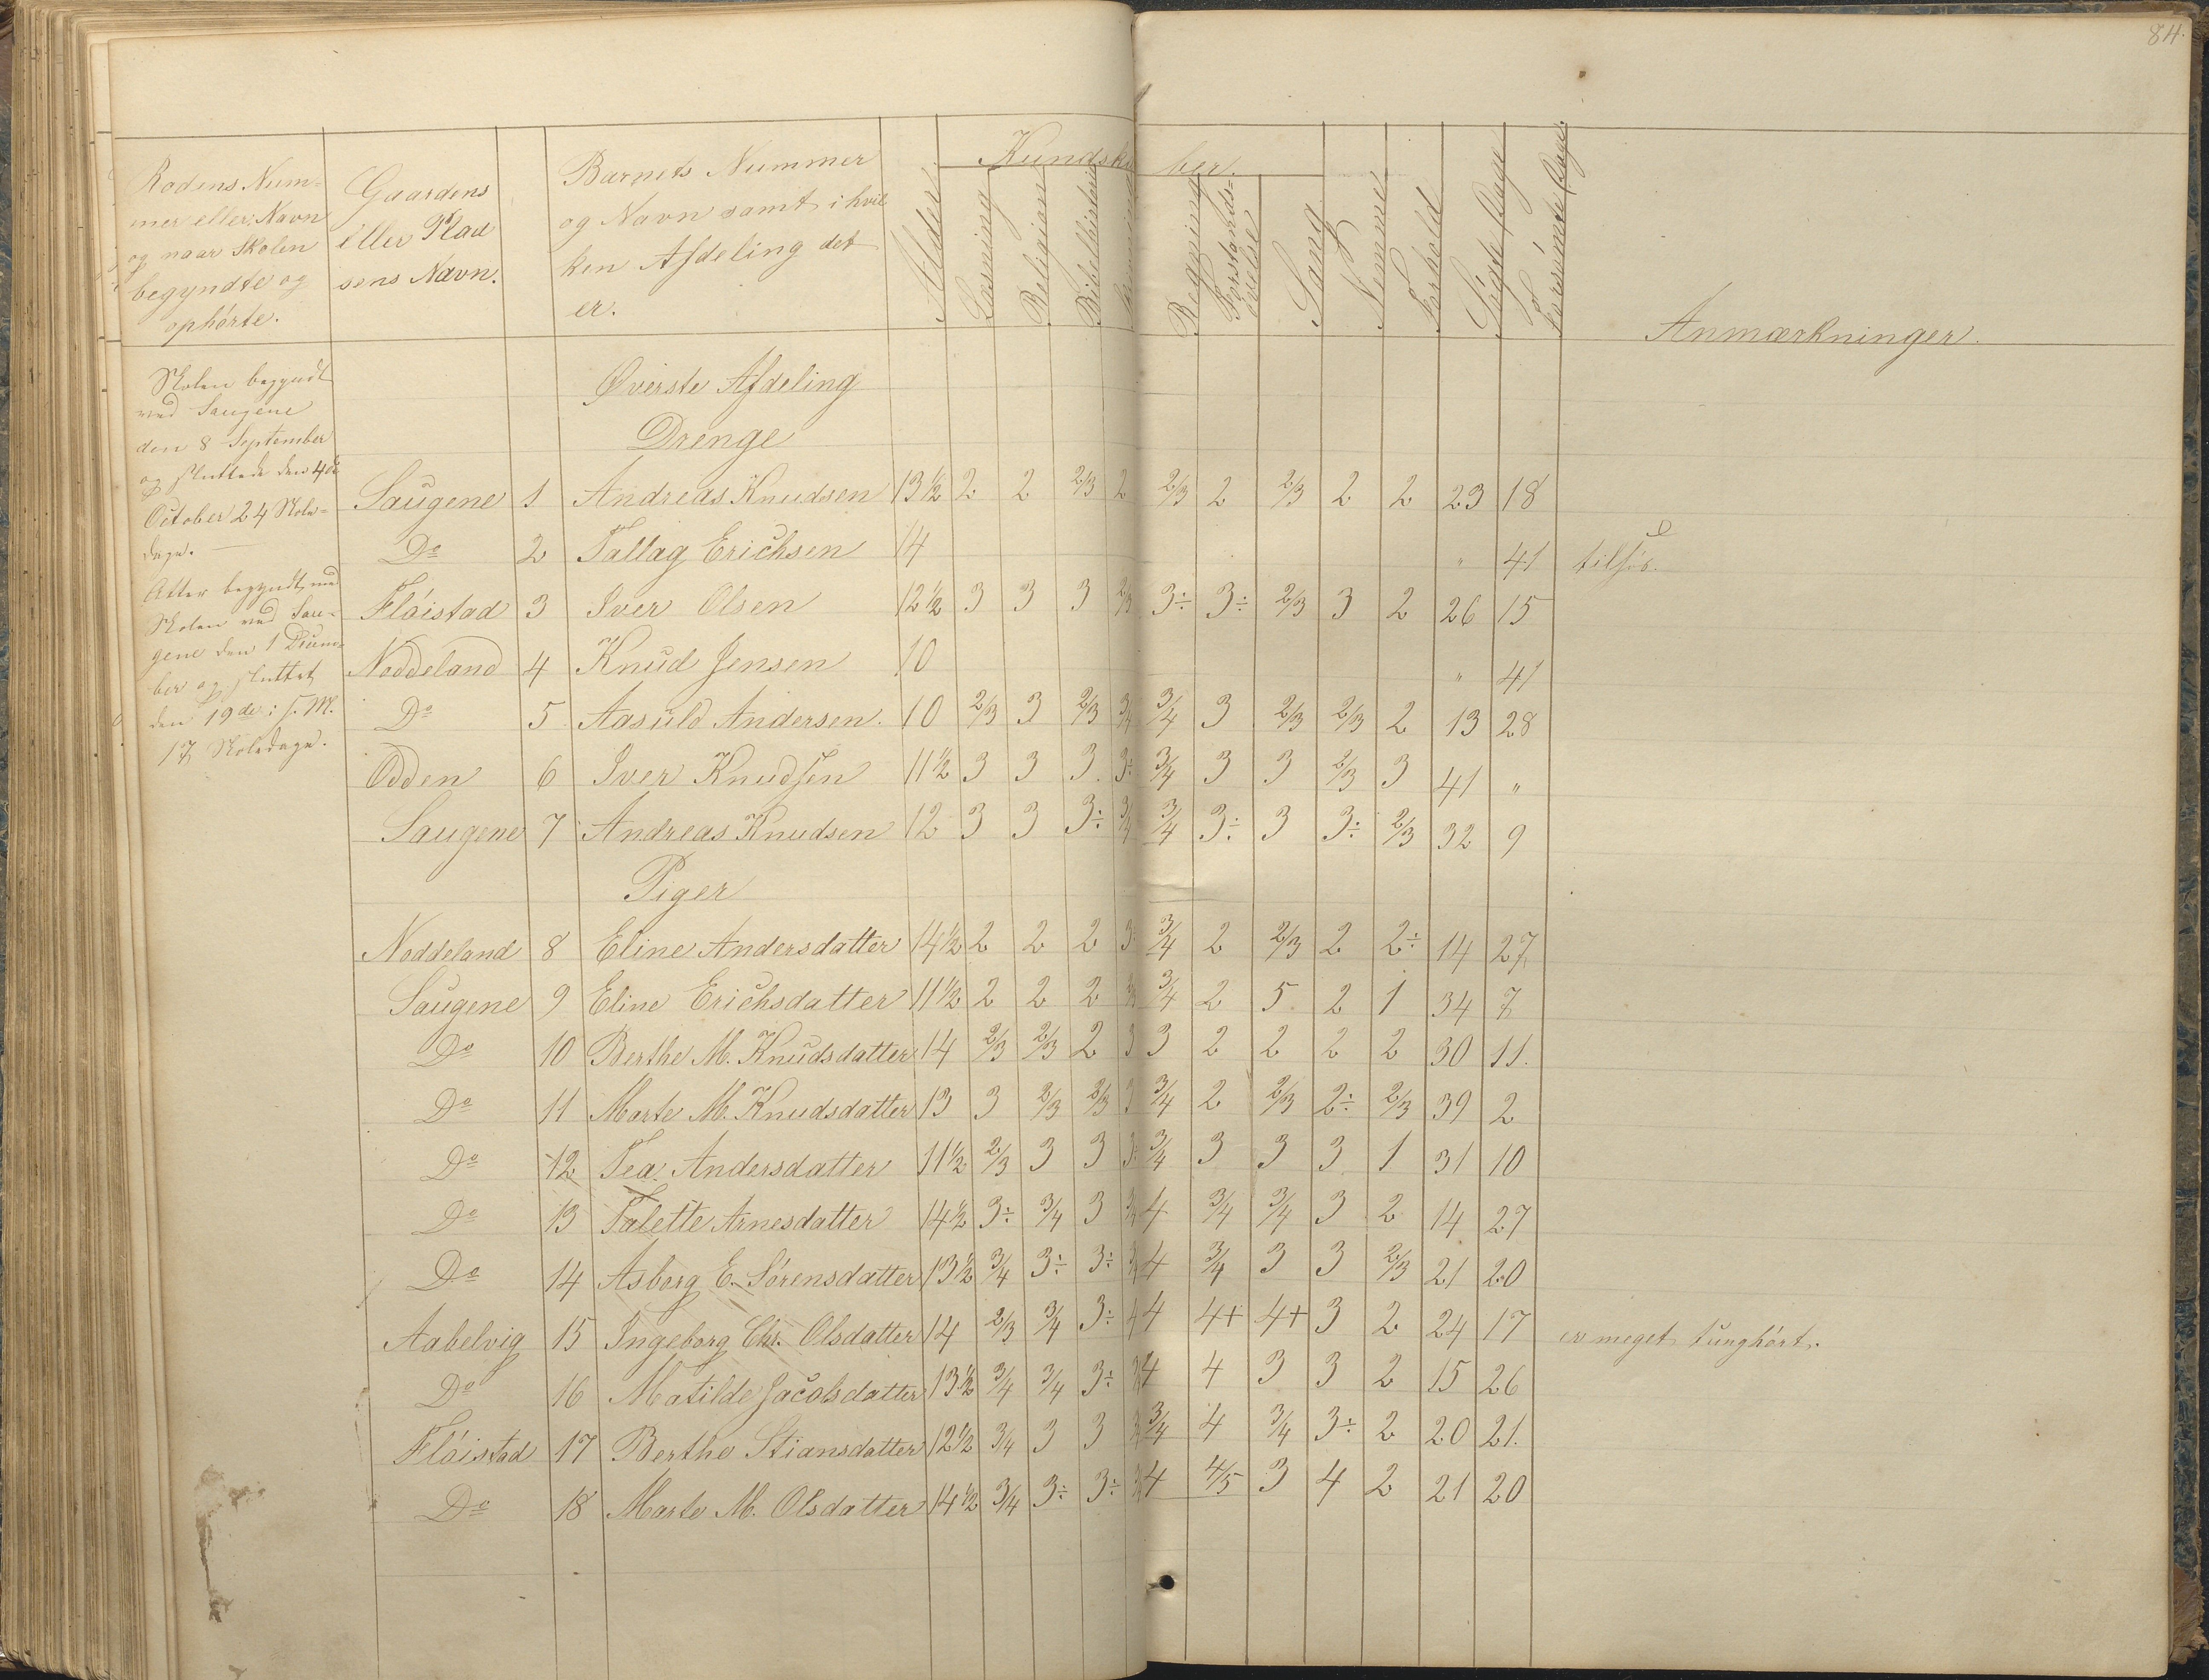 84.
Rodens Num-
mer eller Navn
og naar Skolen
begyndte og
ophørte.
Gaardens
eller Plad
sens Navn.
Barnets Nummer
og Navn samt i hvil
ken Afdeling det
er.
Alder
Kundska ber.
Læsning
Religion
Bibelhistorie
Regning
Forstands-
øvelse
Sang
Nemme
Forhold
Søgte Dage
Forsømte Dage.
Anmærkninger.
Skolen begyndt
ved Saugene
den 8 September
og sluttede den 4de
October 24 Skole-
dage.
Atter begyndt med
Skolen ved Sau-
gene den 1 Decem-
ber og sluttet
den 19de i s. M.
17 Skoledage.
Øverste Afdeling
Drenge
Saugene 1 Andreas Knudsen 13½ 2 2 2/3 2 2/3 2 2/3 2 2 23 18
Do 2 Tallag Erichsen 14 " 41 tilsøs.
Fløistad 3 Iver Olsen 12½ 3 3 3 2/3 3÷ 3÷ 2/3 3 2 26 15
Noddeland 4 Knud Jensen 10 " 41
Do 5 Aasuld Andersen. 10 2/3 3 2/3 3/4 3/4 3 2/3 2/3 2 13 28
Odden 6 Iver Knudsen 11½ 3 3 3 3÷ 3/4 3 3 2/3 3 41 "
Saugene 7 Andreas Knudsen 12 3 3 3÷ 3/4 3/4 3÷ 3 3÷ 2/3 32 9
Piger
Noddeland 8 Eline Andersdatter 14½ 2 2 2 3 3/4 2 2/3 2 2÷ 14 27
Saugene 9 Eline Erichsdatter 11½ 2 2 2 3/4 2 5 2 1 34 7
Do 10 Berthe M. Knudsdatter 14 2/3 2/3 2 3 3 2 2 2 2 30 11.
Do 11 Marte M. Knudsdatter 13 3 2/3 2/3 3 3/4 2 2/3 2÷ 2/3 39 2
Do 12 Tea Andersdatter 11½ 2/3 3 3 3÷ 3/4 3 3 3 1 31 10
Do 13 Talette Arnesdatter 14½ 3÷ 3/4 3 3/4 4 3/4 3/4 3 2 14 27
Do 14 Asborg E. Sørensdatter 13½ 3/4 3÷ 3÷ 3/4 4 3/4 3 3 2/3 21 20
Aabelvig 15 Ingeborg Chr. Olsdatter 14 2/3 3/4 3÷ 4 4 4+ 4+ 3 2 24 17 er meget tunghørt.
Do 16 Matilde Jacobsdatter 13½ 3/4 3/4 3÷ 3/4 4 4 3 3 2 15 26
Fløistad 17 Berthe Stiansdatter 12½ 3/4 3 3 3/4 3/4 4 3/4 3÷ 2 20 21.
Do 18 Marte M. Olsdatter 14½ 3/4 3÷ 3÷ 3/4 4 4/5 3 4 2 21 20